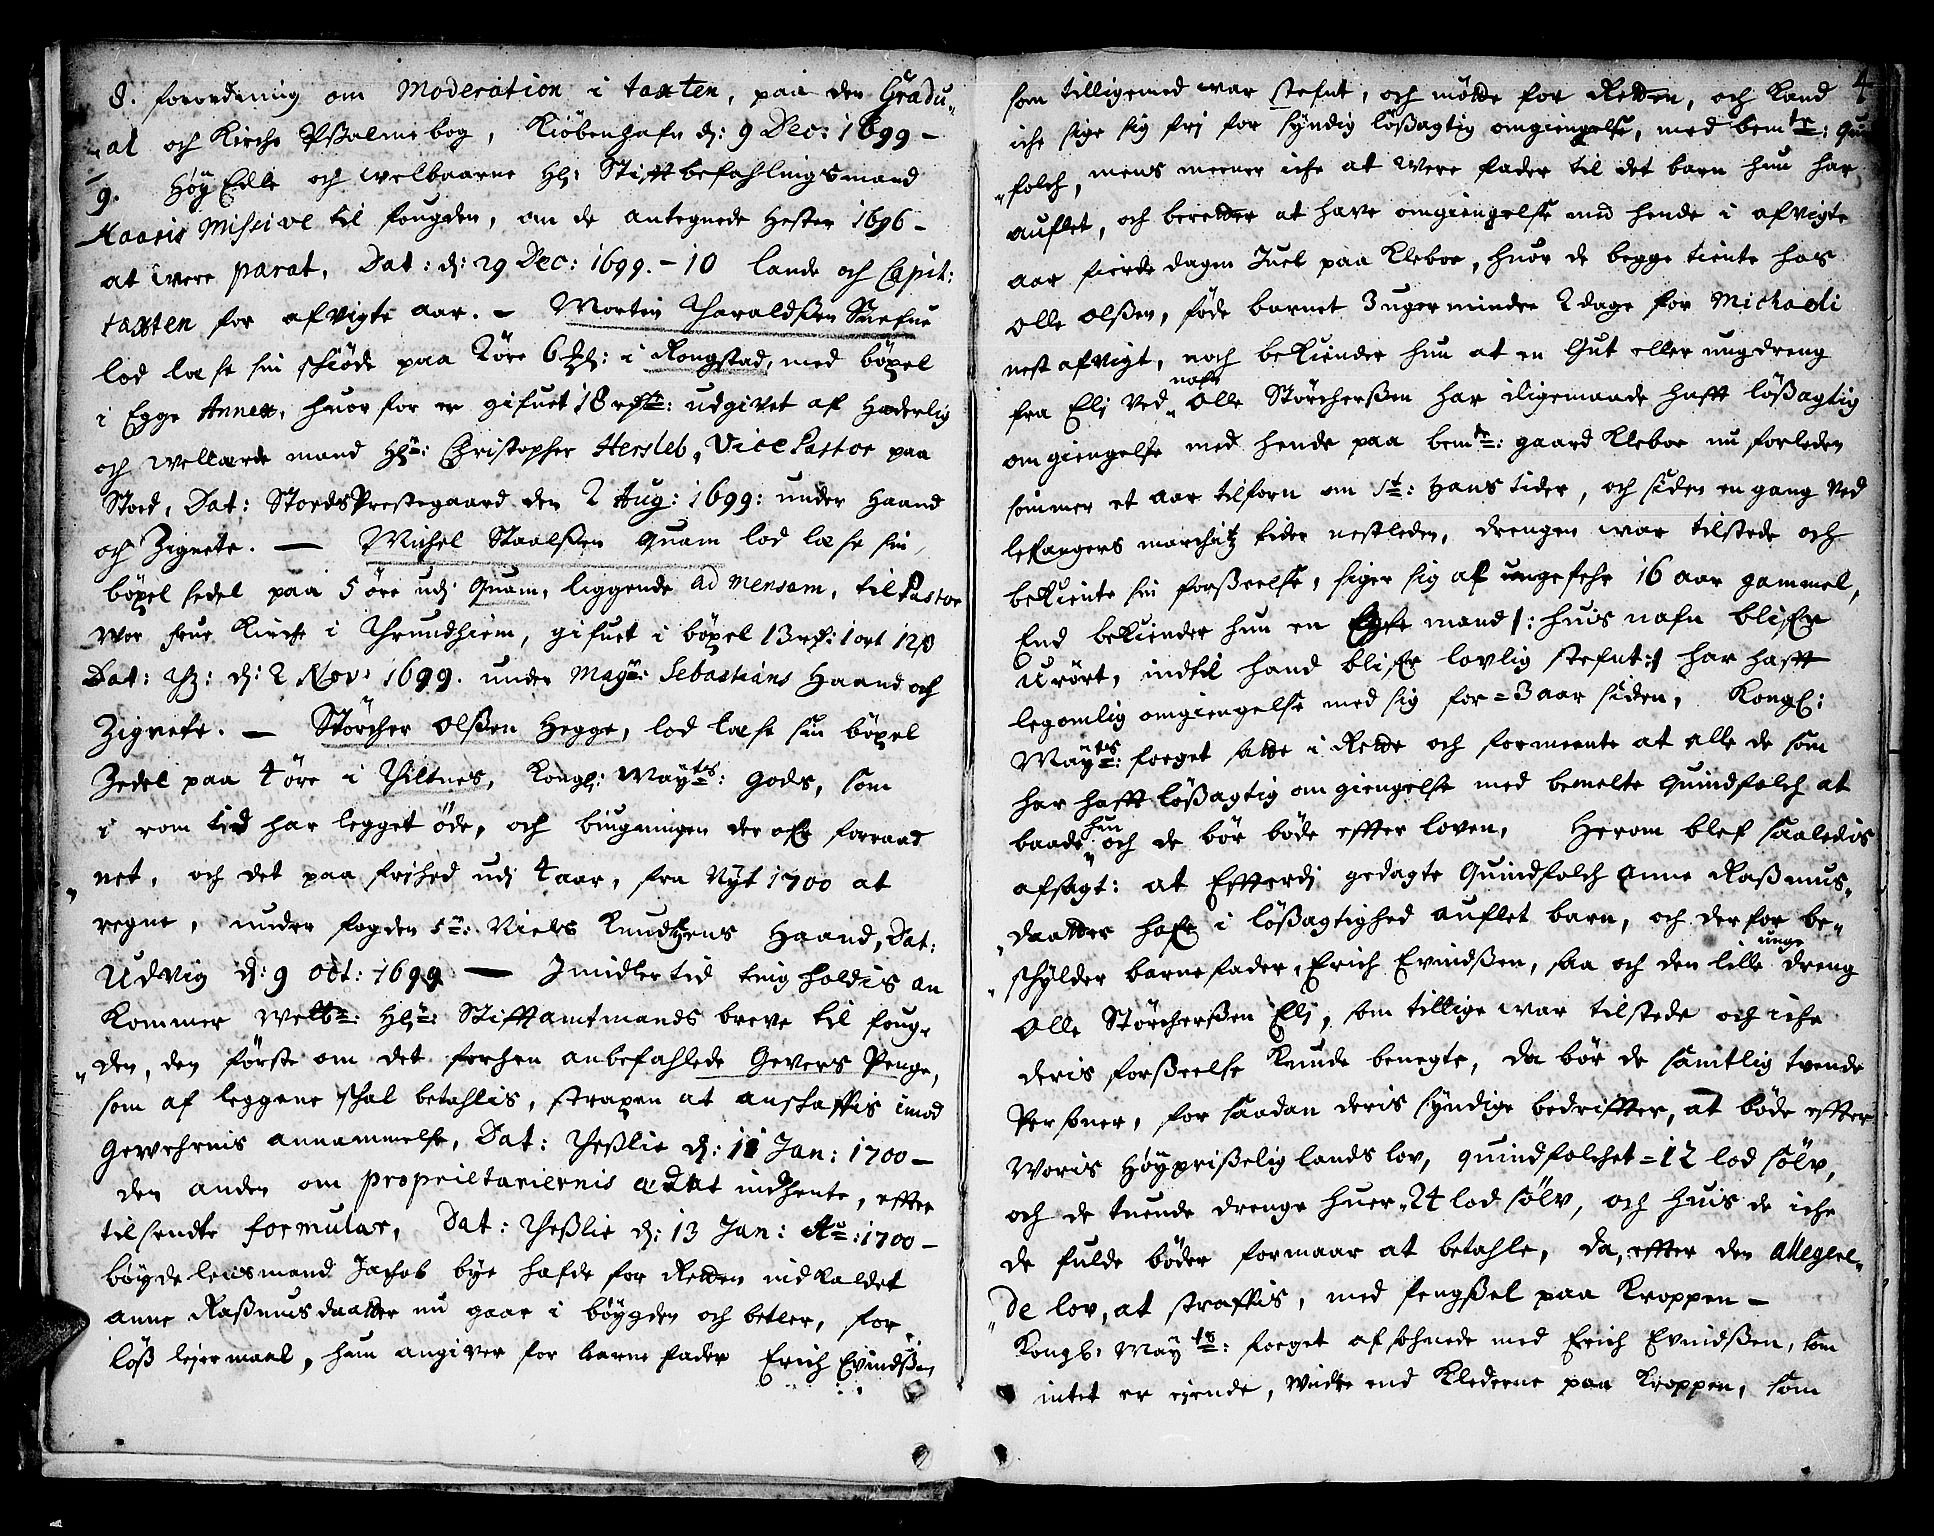 8. forordning om Moderation i taxten, paa den Gradu„
„al och Kirche Psalmebog, Kiöbenhafn d: 9 Dec: 1699 –
9. Höy Edle och welbaarne Hl: Stiftbefahlingsmand
Kaaris Missive til fougden, om de antegnede Hester 1696 –
at were parat, Dat: d: 29 Dec: 1699. – 10 lands och Capit:
taxten for afvigte aar. – Morten Tharaldßen Snefue
lod læse sin schiöde paa 2 öre 6 in Rongstad, med böxel
i Egge Annex, huor for er gifuet 18 rdr: udgivet af Hæderlig
och wellærde mand Hr: Christopher Hersleb, Vice Pastor paa
Stod, Dat: Stords Prestegaard den 2 Aug: 1699: under Haand
och Zignete. — Michel Staalßen Quam lod læse sin
böxel sedel paa 5 öre udj Quam, liggende ad mensam, til Pastor
wor frue Kirche i Thrundhiem, gifuet i böxel 13 rd: 1 ort 12 ß
Dat: Th: d: 2 Nov: 1699. under Mag: Sebastians Haand och
Zignete. — Störcher Olßen Hegge, lod læse sin böxel
Zedel paa 4 öre i Thiltnes, Kongl: Mayts: gods, som
i rom tid har legget öde, och biugningen der ofr forraad
„net, och det paa frihed udj 4 aar, fra Nyt 1700 at
regne, under fogden Sr: Niels Knudtzens Haand, Dat:
Udvig d: 9 Oct: 1699 — Imidlertid ting holdis an
kommer welb: Hr: Stifftamtmands breve til foug„
„den, den förste om det forhen anbefahlede Gevers Penge,
som af leggene schal betahlis, straxen at anskaffis imod
Gewehrnis annammelse, Dat: Theßlie d: 11 Jan: 1700 –
den anden om proprietariernis indhente, effter
tilsendte formular, Dat: Theßlie d: 13 Jan: Ao: 1700 –
böyde lensmand Jachob bye hafde for Retten indkaldet
anne Raßmusdaatter nu gaar i böygden och betler, for
löß lejermaal, hun angiver for barne fader Erich Evindßen,
4
som tilligemed war stefnt, och mötte for Retten, och kand
iche sige sig frj for syndig lößagtig omgiengelse, med bemte: Qui
„folch, mens meener iche at were fader til det barn hun har
auflet, och beretter at have omgiengelse med hende i afvigte
aar fierde dagen Juel paa Kleboe, huor de begge tiente hos
Olle Olßen, föde barnet 3 uger mindre 2 dage for Michaeli
nest afvigt, noch bekiender hun at en Gut eller ungdreng
fra Elj ved nafn Olle Störcherßen har iligemaade hafft lößagtig
omgiengelse med hende paa bemte: gaard Kleboe nu forleden
sommer et aar tilforn om St: Hans tider, och siden en gang ved
lefangers marchitz tider nestleden, drengen war tilstede och
bekiente sin forseelse, siger sig af ungefehr 16 aar gammel,
End bekiender hun en Egte mand /: huis nafn blifr
Urört, indtil hand blifr lovlig stefnt :/ har hafft
legomlig omgiengelse med sig for = 3 aar siden, Kongl:
Mayts: foeget satte i Rette och formeente at alle de som
har hafft lößagtig omgiengelse med bemelte Quindfolch at
baade hun och de bör böde effter loven, Herom blef saaledis
afsagt: at Effterdj gedagte Quindfolch Anne Raßmus„
„daatter hafr i lößagtighed auflet barn, och derfor be„
„schylder barnefader, Erich Evindßen, saa och den lille unge dreng
Olle Störcherßen Elj, som tillige war tilstede och iche
deris forseelse kunde benegte, da bör de samtlig tvende
Persöner, for saadan deris syndige bedriffter, at böde effter
Woris Höyprißelig lands lov, quindfolchet = 12 lod sölv,
och de tuende drenge huer 24 lod sölv, och huis de iche
de fulde böder formaar at betahle, da, effter den allegeel„
„de lov, at straffis, med fengßel paa kroppen –
Kongl: Mayts: foeget afsohnede med Erich Evindßen, som
intet er ejende, widre end klederne paa kroppen, som